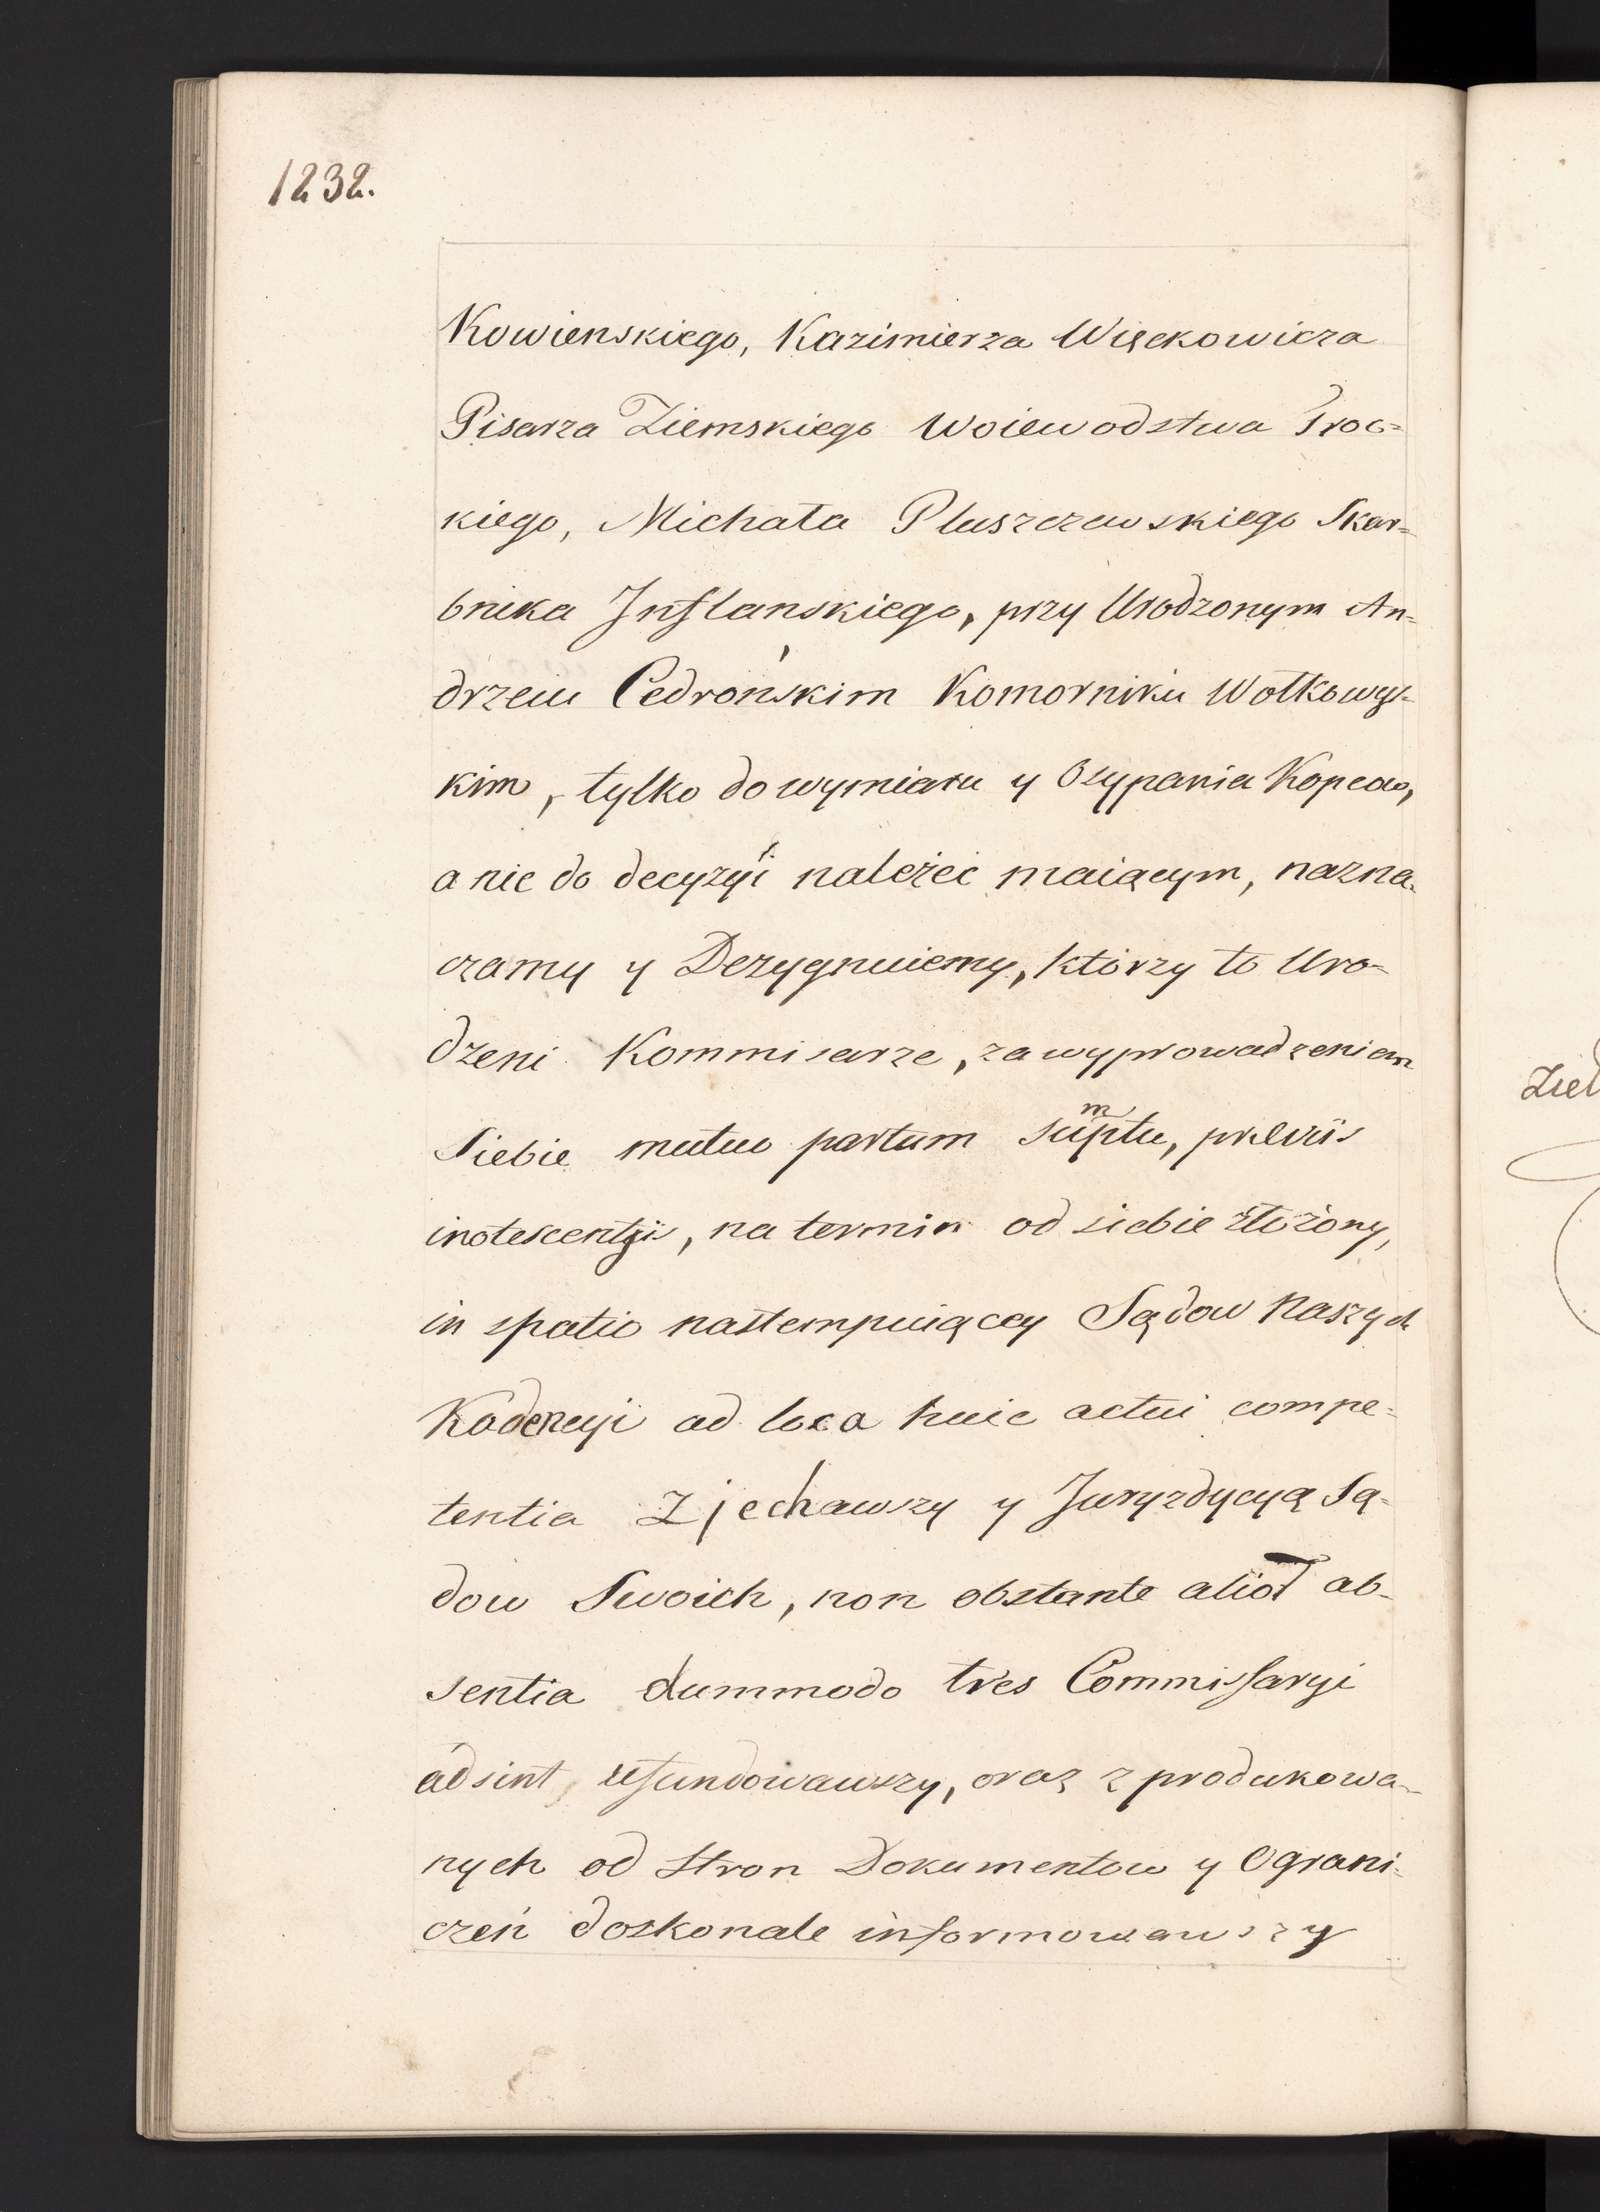 1232.
Kowienskiego, Kazimierza Więckowicza
Pisarza Ziemskiego Woiewodztwa Troc=
kiego, Michała Pluszczewskiego Skar=
bnika Inflanskiego, przy Urodzonym An=
drzeiu Cedrońskim Komorniku Wołkowys=
kim, tylko do wymiaru y Osypania Kopcow,
a nie do decyzyi należeć maiącym, nazna=
czamy y Dezygnuiemy, ktorzy to Uro=
dzeni Kommisarze, za wyprowadzeniem
Siebie mutuo partum suptu, præviis
m
inotescentyis, na termin od siebie złożony,
in spatio nastempuiącey Sądow Naszych
Kadencyi ad loca huic actui compe=
tentia Zjechawszy y Juryzdycyą Są=
dow Swoich, non obstante alior ab=
sentia dummodo tres Commissaryi
adsint, ufundowawszy, oraz z produkowa=
nych od Stron Dokumentow y Ograni=
czeń doskonale informowawszy
Ziel